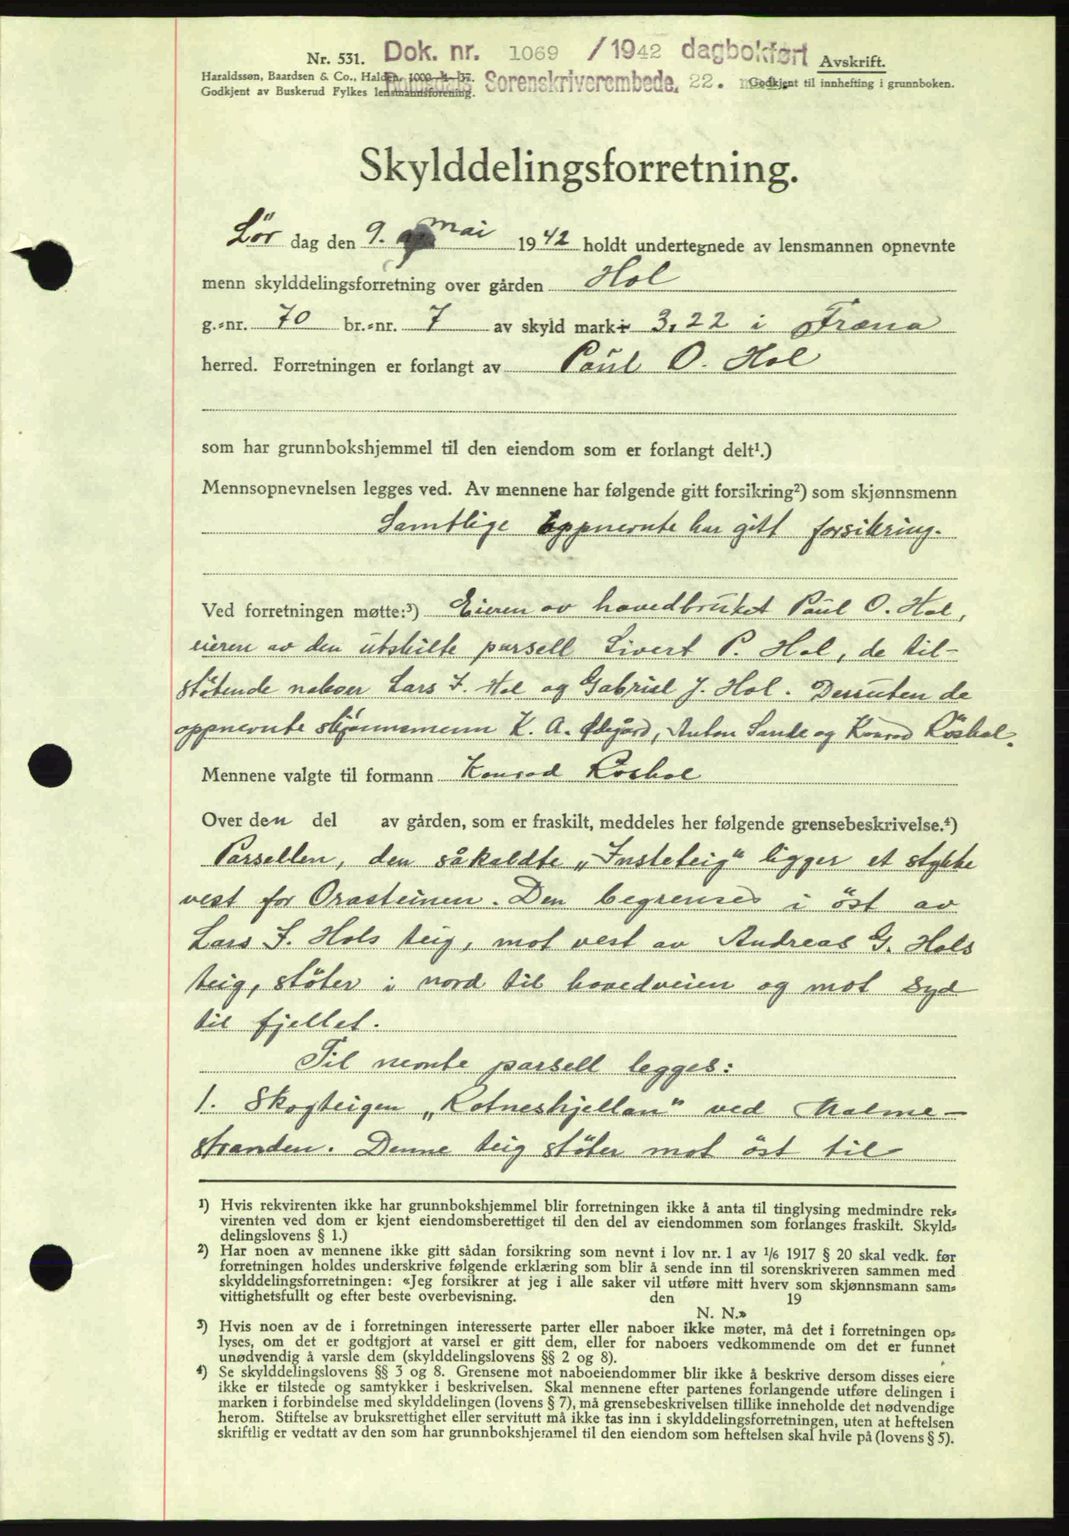 Nr. 531. Dok. nr. 1069 / 1942 dagbokført Avskrift.
Haraldssøn, Baardsen & Co., Halden. 1000-4-37. Sorenskriverembede, 22. Godkjent til innhefting i grunnboken.
Godkjent av Buskerud Fylkes lensmannsforening.
Skylddelingsforretning.
Lør dag den 9. mai 1942 holdt undertegnede av lensmannen opnevnte
menn skylddelingsforretning over gården Hol
g.-nr. 70 br.-nr. 7 av skyld mark 3,22 i Fræna
herred. Forretningen er forlangt av Paul O. Hol
som har grunnbokshjemmel til den eiendom som er forlangt delt¹.)
Mennsopnevnelsen legges ved. Av mennene har følgende gitt forsikring²) som skjønnsmenn
Samtlige oppnevnte har gitt forsikring.
Ved forretningen møtte:³) Eieren av hovedbruket Paul O. Hol,
eieren av den utskilte parsell Sivert P. Hol, de til-
støtende naboer Lars I. Hol og Gabriel J. Hol. Dessuten de
oppnevnte skjønnsmenn K. A. Ødegård, Anton Sande og Konrad Röshol.
Mennene valgte til formann Konrad Röshol
Over den del av gården, som er fraskilt, meddeles her følgende grensebeskrivelse.⁴)
Parsellen, den såkaldte „Insteteig" ligger et stykke
vest for Orasteinen. Den begrenses i öst av
Lars I. Hols teig, mot vest av Andreas G. Hols
teig, støter i nord til hovedveien og mot Syd
til fjellet.
Til nevnte parsell legges:
1. Skogteigen „Kotneshjellan" ved Malme-
stranden. Denne teig støter mot öst til
¹) Hvis rekvirenten ikke har grunnbokshjemmel blir forretningen ikke å anta til tinglysing medmindre rek-
virenten ved dom er kjent eiendomsberettiget til den del av eiendommen som forlanges fraskilt. Skyld-
delingslovens § 1.)
²) Har noen av mennene ikke gitt sådan forsikring som nevnt i lov nr. 1 av 1/6 1917 § 20 skal vedk. før
forretningen holdes underskrive følgende erklæring som blir å sende inn til sorenskriveren sammen med
skylddelingsforretningen: «Jeg forsikrer at jeg i alle saker vil utføre mitt hverv som skjønnsmann sam-
vittighetsfullt og efter beste overbevisning. den 19
N. N.»
³) Hvis noen av de i forretningen interesserte parter eller naboer ikke møter, må det i forretningen op-
lyses, om det er godtgjort at varsel er gitt dem, eller for naboers vedkommende om det er funnet
unødvendig å varsle dem (skylddelingslovens §§ 2 og 8).
⁴) Se skylddelingslovens §§ 3 og 8. Grensene mot naboeiendommer blir ikke å beskrive dersom disses eiere
ikke er tilstede og samtykker i beskrivelsen. Skal mennene efter partenes forlangende utføre delingen i
marken i forbindelse med skylddelingen (lovens § 7), må grensebeskrivelsen tillike inneholde det nødvendige
herom. Stiftelse av bruksrettighet eller servitutt må ikke tas inn i skylddelingsforretningen, uten at heftelsen
skriftlig er vedtatt av den som har grunnbokshjemmel til den eiendom som heftelsen skal hvile på (lovens § 5).